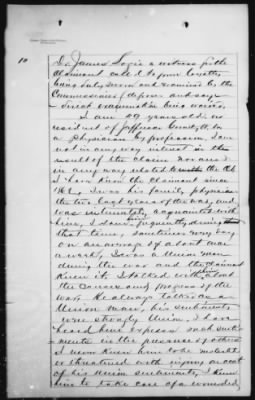 10
Dr James Logie a witness for the
claimant called to prove loyalty
being duly sworn and examined by the
Commissioner deposes and says
direct examination being waived.
I am 49 years old, a
resident of Jefferson County, a
physician by profession, I am
not in any way interest in the
result of the claim nor am I
in any way related to the
I have known the claimant since
186 I was his family physician
the two last years of the war, and
was intimately acquainted with
him, I saw him frequently during
that time, sometimes every day
on an average of about once
a week, I was a Union man
during the war and the claimant
knew it. I talked with him about
the Success and progress of the
war. He always talked as a
Union man, his sentiments
were strongly Union, I have
heard him express such senti-
ments in the presence of others
I never knew him to be molested
or threatened with injury on acct
of his Union sentiments, I knew
him to take care of a wounded